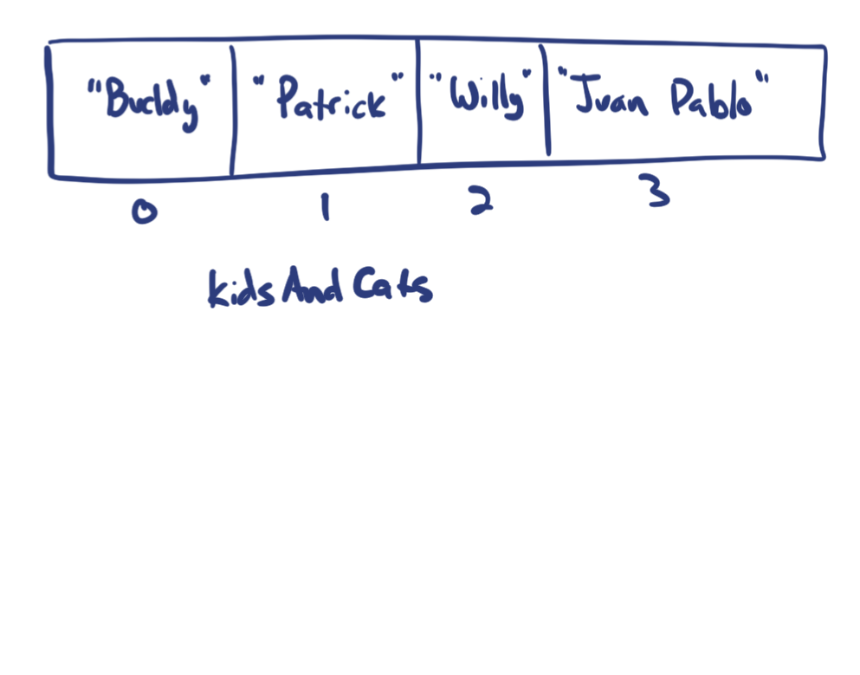 "Buddy" "Patrick" "Willy" "Juan Pablo"
0 1 2 3
kidsAndCats